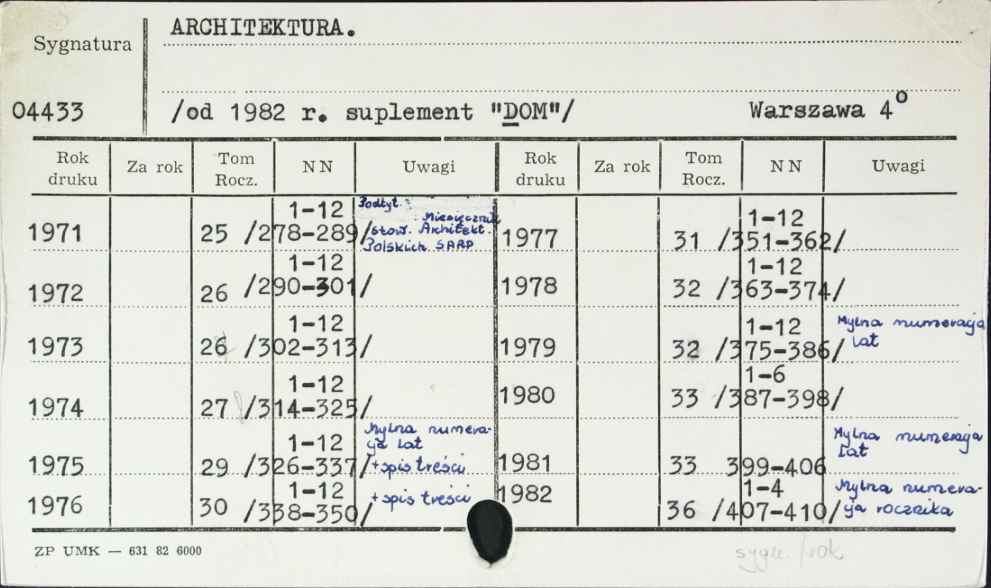 ARCHITEKTURA.
Sygnatura
04433 /od 1982 r. suplement "DOM"/ Warszawa 4°
Rok druku Za rok Tom Rocz. NN Uwagi Rok druku Za rok Tom Rocz. NN Uwagi
1971 25 1-12 /278-289/ Podtyt.: Miesięcznik Stow. Architekt. Polskich SARP
1972 26 1-12 /290-301/
1973 26 1-12 /302-313/
1974 27 1-12 /314-325/
1975 29 1-12 /326-337/ Mylna numeracja lat + spis treści
1976 30 1-12 /338-350/ + spis treści
1977 31 1-12 /351-362/
1978 32 1-12 /363-374/
1979 32 1-12 /375-386/ Mylna numeracja lat
1980 33 1-6 /387-398/
1981 33 399-406 Mylna numeracja lat
1982 36 1-4 /407-410/ Mylna numeracja rocznika
ZP UMK — 631 82 6000
sygn. /rok